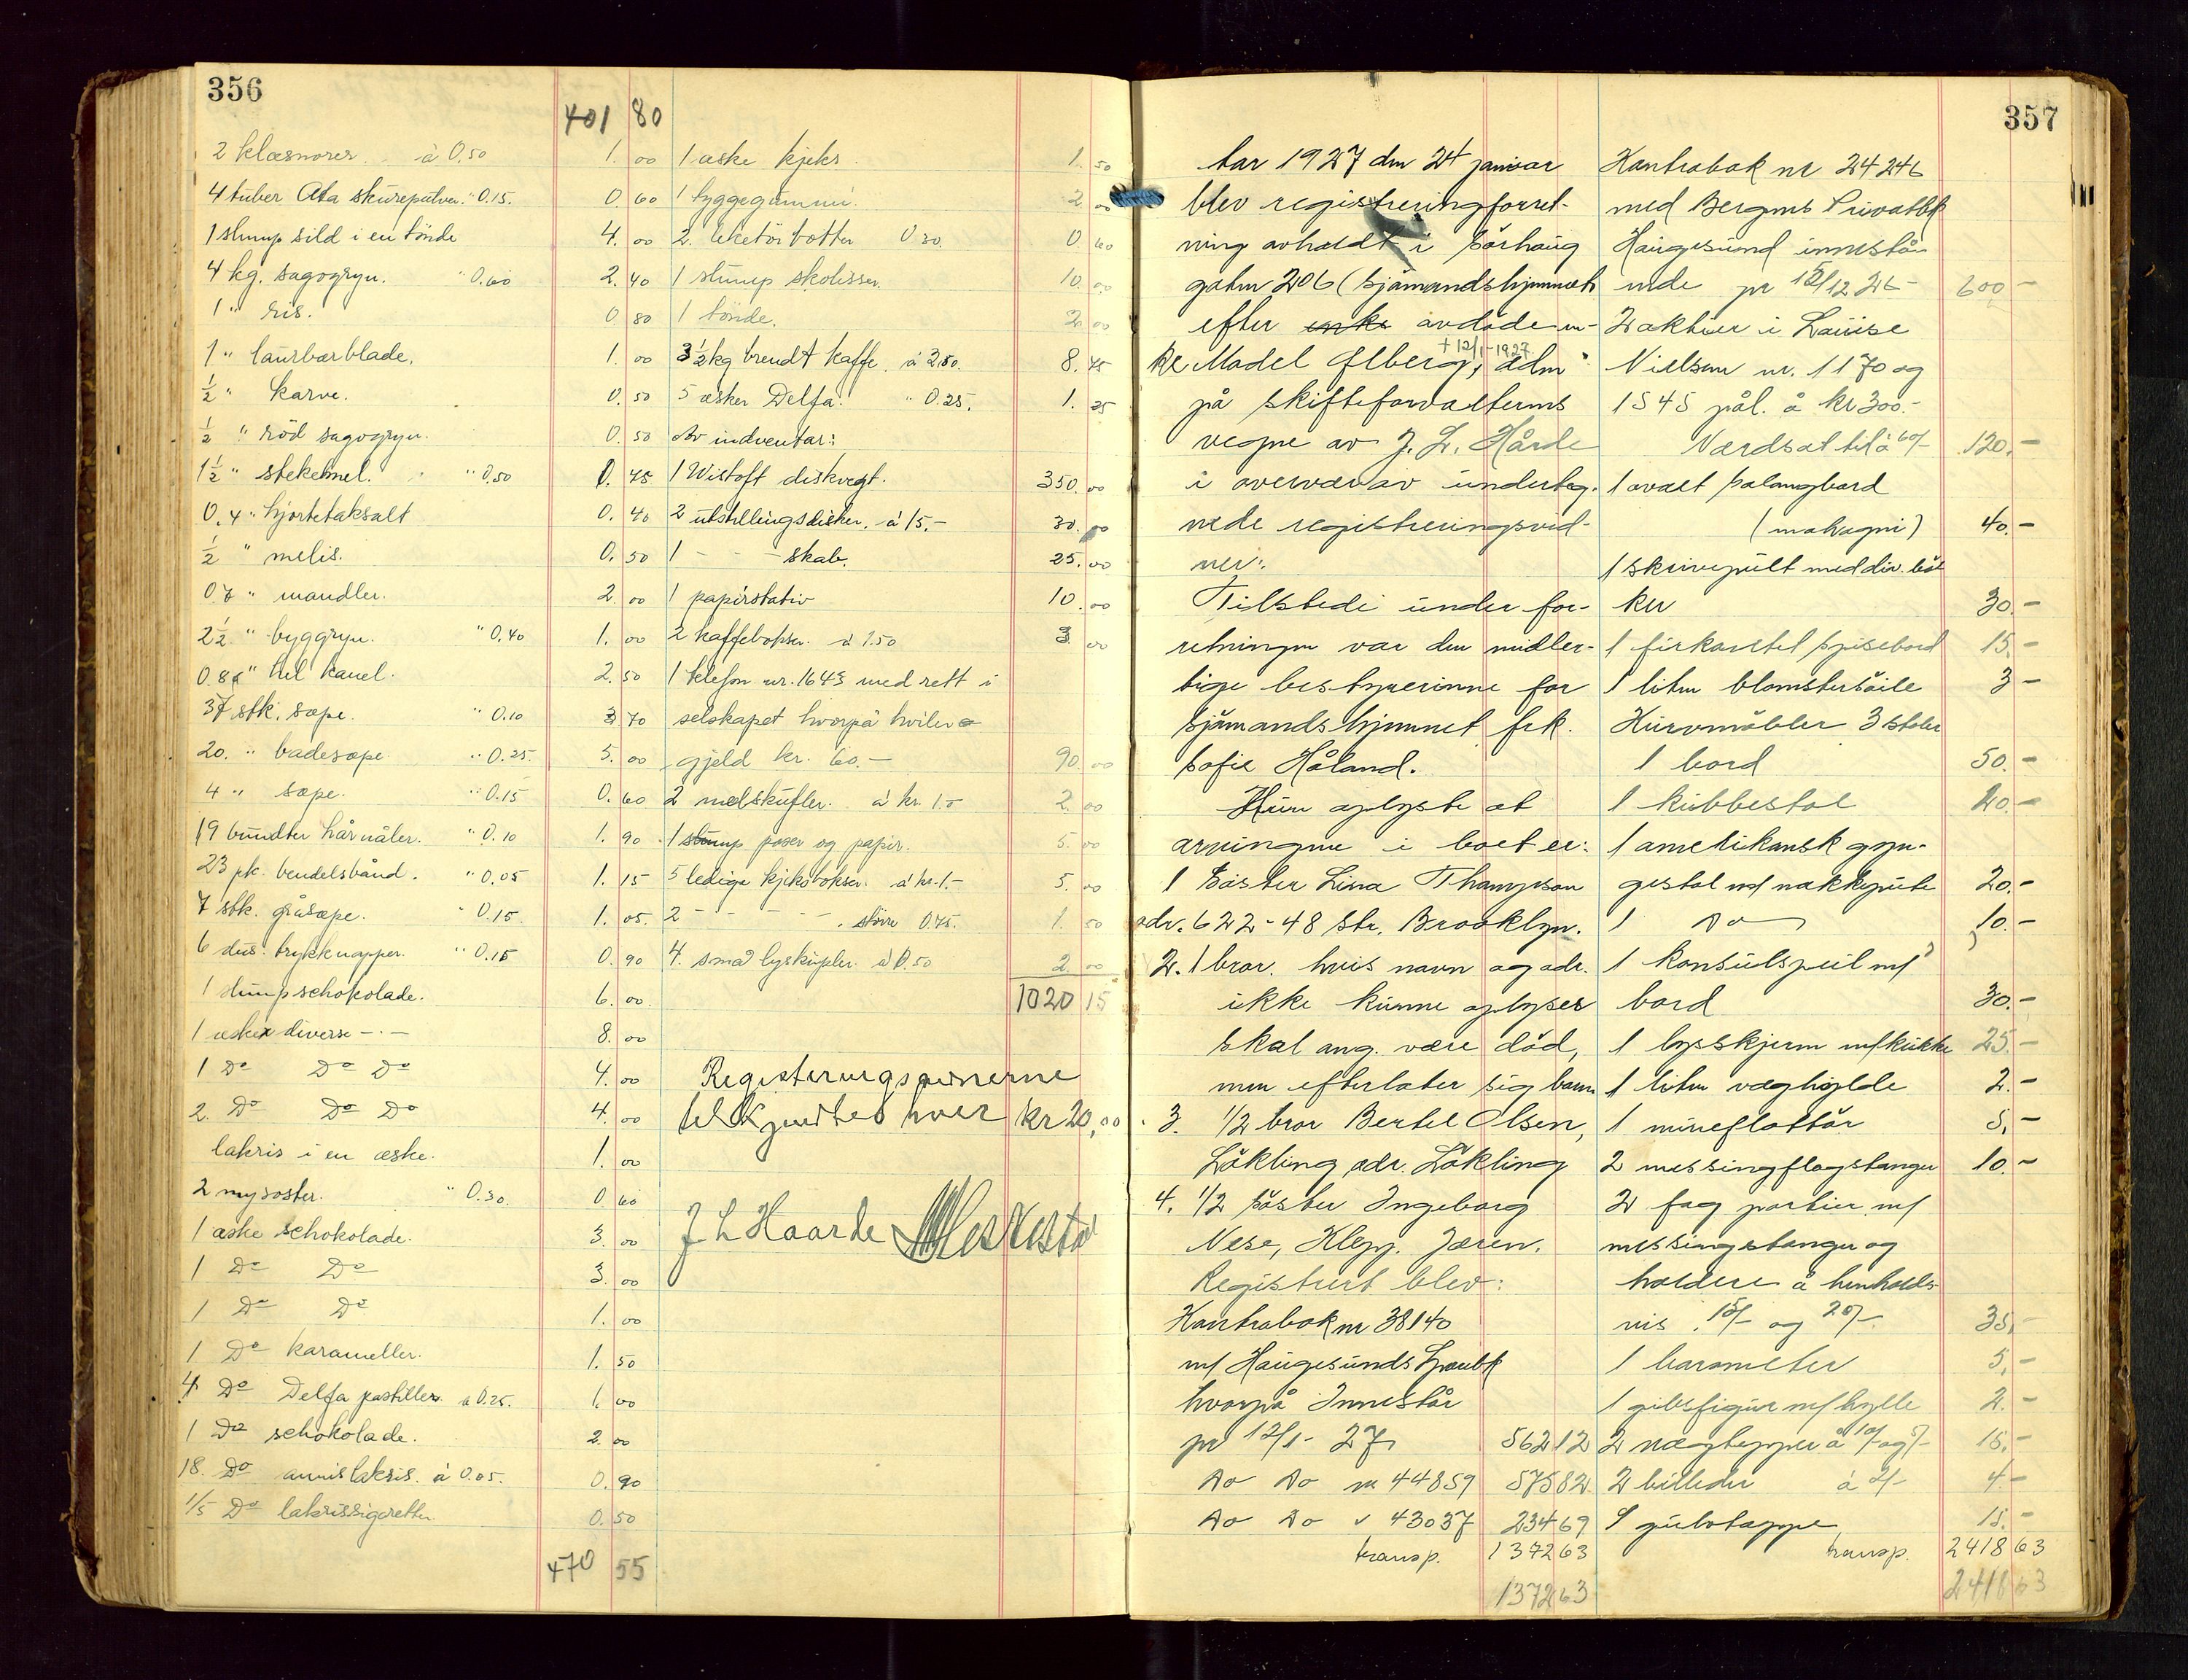 356
401 80
2 klæsnorer à 0.50 1.00
4 tuber Ata skurepulver " 0.15. 0.60
1 slump sild i en tönde 4.00
4 kg. sagogryn. " 0.60 2.40
1 " ris. 0.80
1 " laurbærblade. 1.00
½ " karve. 0.50
½ " röd sagogryn. 0.50
1½ " stekemel. " 0.50 0.75
0.4 " hjortetaksalt 0.40
½ " melis. 0.50
0.7 " mandler. 2.00
2½ " byggryn. " 0.40 1.00
0.85 " hel kanel. 2.50
37 stk. sæpe. " 0.10 3.70
20. " badesæpe. " 0.25. 5.00
4 " sæpe. " 0.15 0.60
19 bundter hårnåler. " 0.10 1.90
23 pk. bendelsbånd. " 0.05 1.15
7 stk. gråsæpe. " 0.15. 1.05.
6 dus. trykknapper. " 0.15 0.90
1 slump schokolade. 6.00.
1 æsker diverse - " - 8.00
1 Do Do Do 4.00
2. Do Do Do 4.00
lakris i en æske. 1.00
2 mysoster. " 0.30. 0.60
1 æske schokolade. 3.00
1 Do Do 3.00
1 Do Do 1.00
1 Do karameller. 1.50
4 Do Delfa pastiller à 0.25. 1.00
1 Do schokolade. 2.00
18. Do annislakris. à 0.05. 0.90
1/5 Do lakrissigaretter 0.50
470 55
1 æske kjeks. 1.50
1 tyggegummi. 2.00
2. 0.30. 0.60
1 slump skolisser. 10.00
1 tönde. 2.00
3½ kg brendt kaffe. à 2.50. 8.75
5 æsker Delfa. " 0.25. 1.25
Av indventar:
1 Wistoft diskvegt. 350.00
2 utstillingsdisker. à 15.- 30.00
1 - - - skab. 25.00
1 papirstativ 10.00
2 kaffebokser. à 1.50 3.00
1 telefon nr. 1643 med rett i
selskapet hvorpå hviler
gjeld kr. 60.- 90.00
2 melskufler. à kr. 1.- 2.00
1 slump poser og papir. 5.00
5 ledige kjeksbokser. à kr. 1.- 5.00
2 - - - - . större 0.75. 1.50
4. små lyskupler. à 0.50 2.00
1020 15
Registeringsvinerne
tilkjendtes hver kr 20,00
J L Haarde
357
Aar 1927 den 24 januar
blev registreringforret-
ning avholdt i Sörhaug
gaten 206 (Sjömandshjemmet)
efter enke avdöde en-
+ 12/1-1927
ke Madel Ølberg, adm
på skifteforvalterens
vegne av J. L. Hårde
i overvær av underteg-
nede registreringsvid-
ner:
Tilstede under for-
retningen var den midler-
tige bestyrerinne for
sjömandshjemmet frk.
Sofie Håland.
Hun oplyste at
arvingene i boet er:
1 Söster Lina Thompson
adr. 622-48 Str. Brooklyn.
2. 1 bror. hvis navn og adr.
ikke kunne oplyses
skal ang. være död,
men efterlater sig barn
3. 1/2 bror Bertel Olsen,
Lökling adr. Lökling
4. 1/2 söster Ingeborg
Nese, Klepp. Jæren.
Registrert blev:
Kontrabok nr 38140
m/ Haugesunds Sparebk
hvorpå Innestår
pr 12/1- 27 562 12
Do Do nr 44859 575 82
Do Do " 43037 234 69
transp. 1372 63
1372 63
Kontrabok nr 24246
med Bergens Privatbk
Haugesund innestå-
ende pr 15/12 26 - 600 -
2 aktier i Louise
Nielsen nr. 1170 og
1545 pål. à kr 300.-
Værdsat til à 60/- 120.-
1 ovalt salongbord
(mahogni) 40.-
1 skrivepult med div. bö-
ker 30.-
1 firkantet spisebord 15.-
1 liten blomstersöile 3 -
Kurvmöbler 3 stoler
1 bord 50.-
1 kubbestol 20.-
1 amerikansk gyn-
gestol m/ nakkepute 20.-
1 Do 10.-
1 konsulspeil m/
bord 30.-
1 lysskjerm m/ krukke 25.-
1 liten væghylde 2.-
1 5.-
2 messingflagstanger 10.-
2 fag portier m/
messingstanger og
holdere à henholds-
vis 15/- og 20/- 35.-
1 barometer 5.-
1 gibsfigur m/ hylle 2.-
2 vægtepper à 10/- og 5/- 15.-
2 billeder à 2/- 4.-
1 gulvtæppe 15.-
transp. 2418 63
2418 63